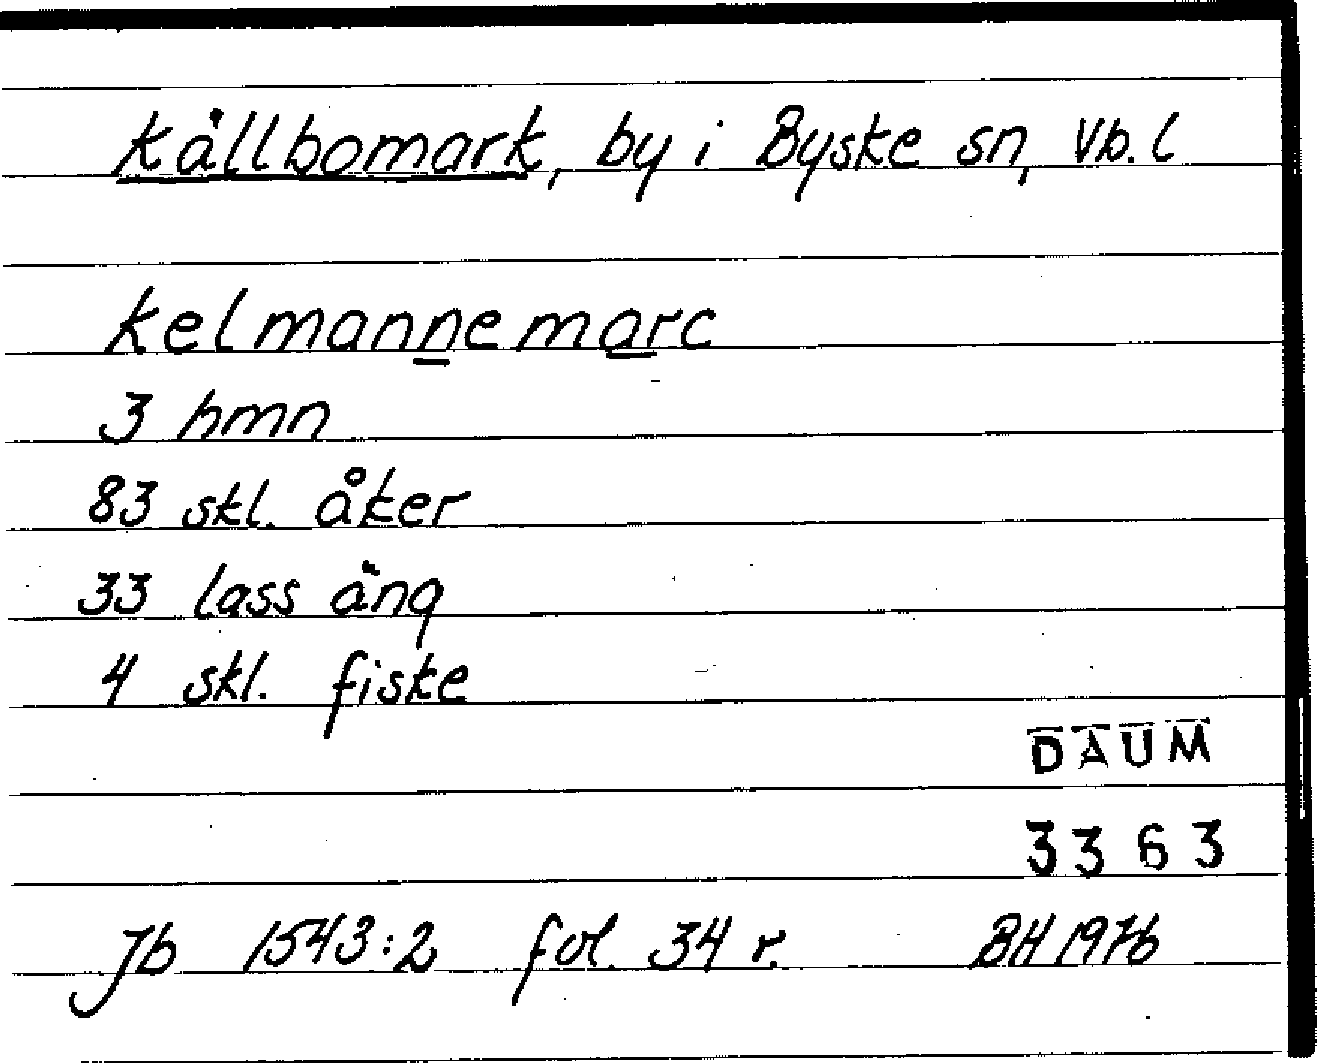 Kållbomark, by i Byske sn, Vb. l
Kelmannemarc
3 hmn
83 skl. åker
33 lass äng
4 skl. fiske
DAUM
3363
Jb 1543:2 fol. 34 r. BH 1976